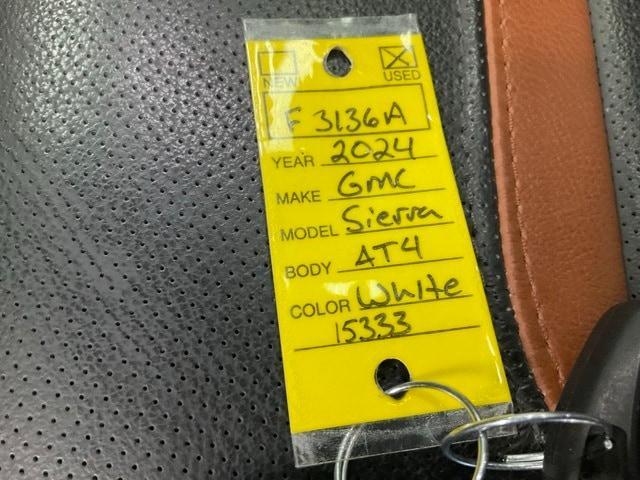 NEW USED
F 3136A
YEAR 2024
MAKE GMC
MODEL Sierra
BODY AT4
COLOR White
15333